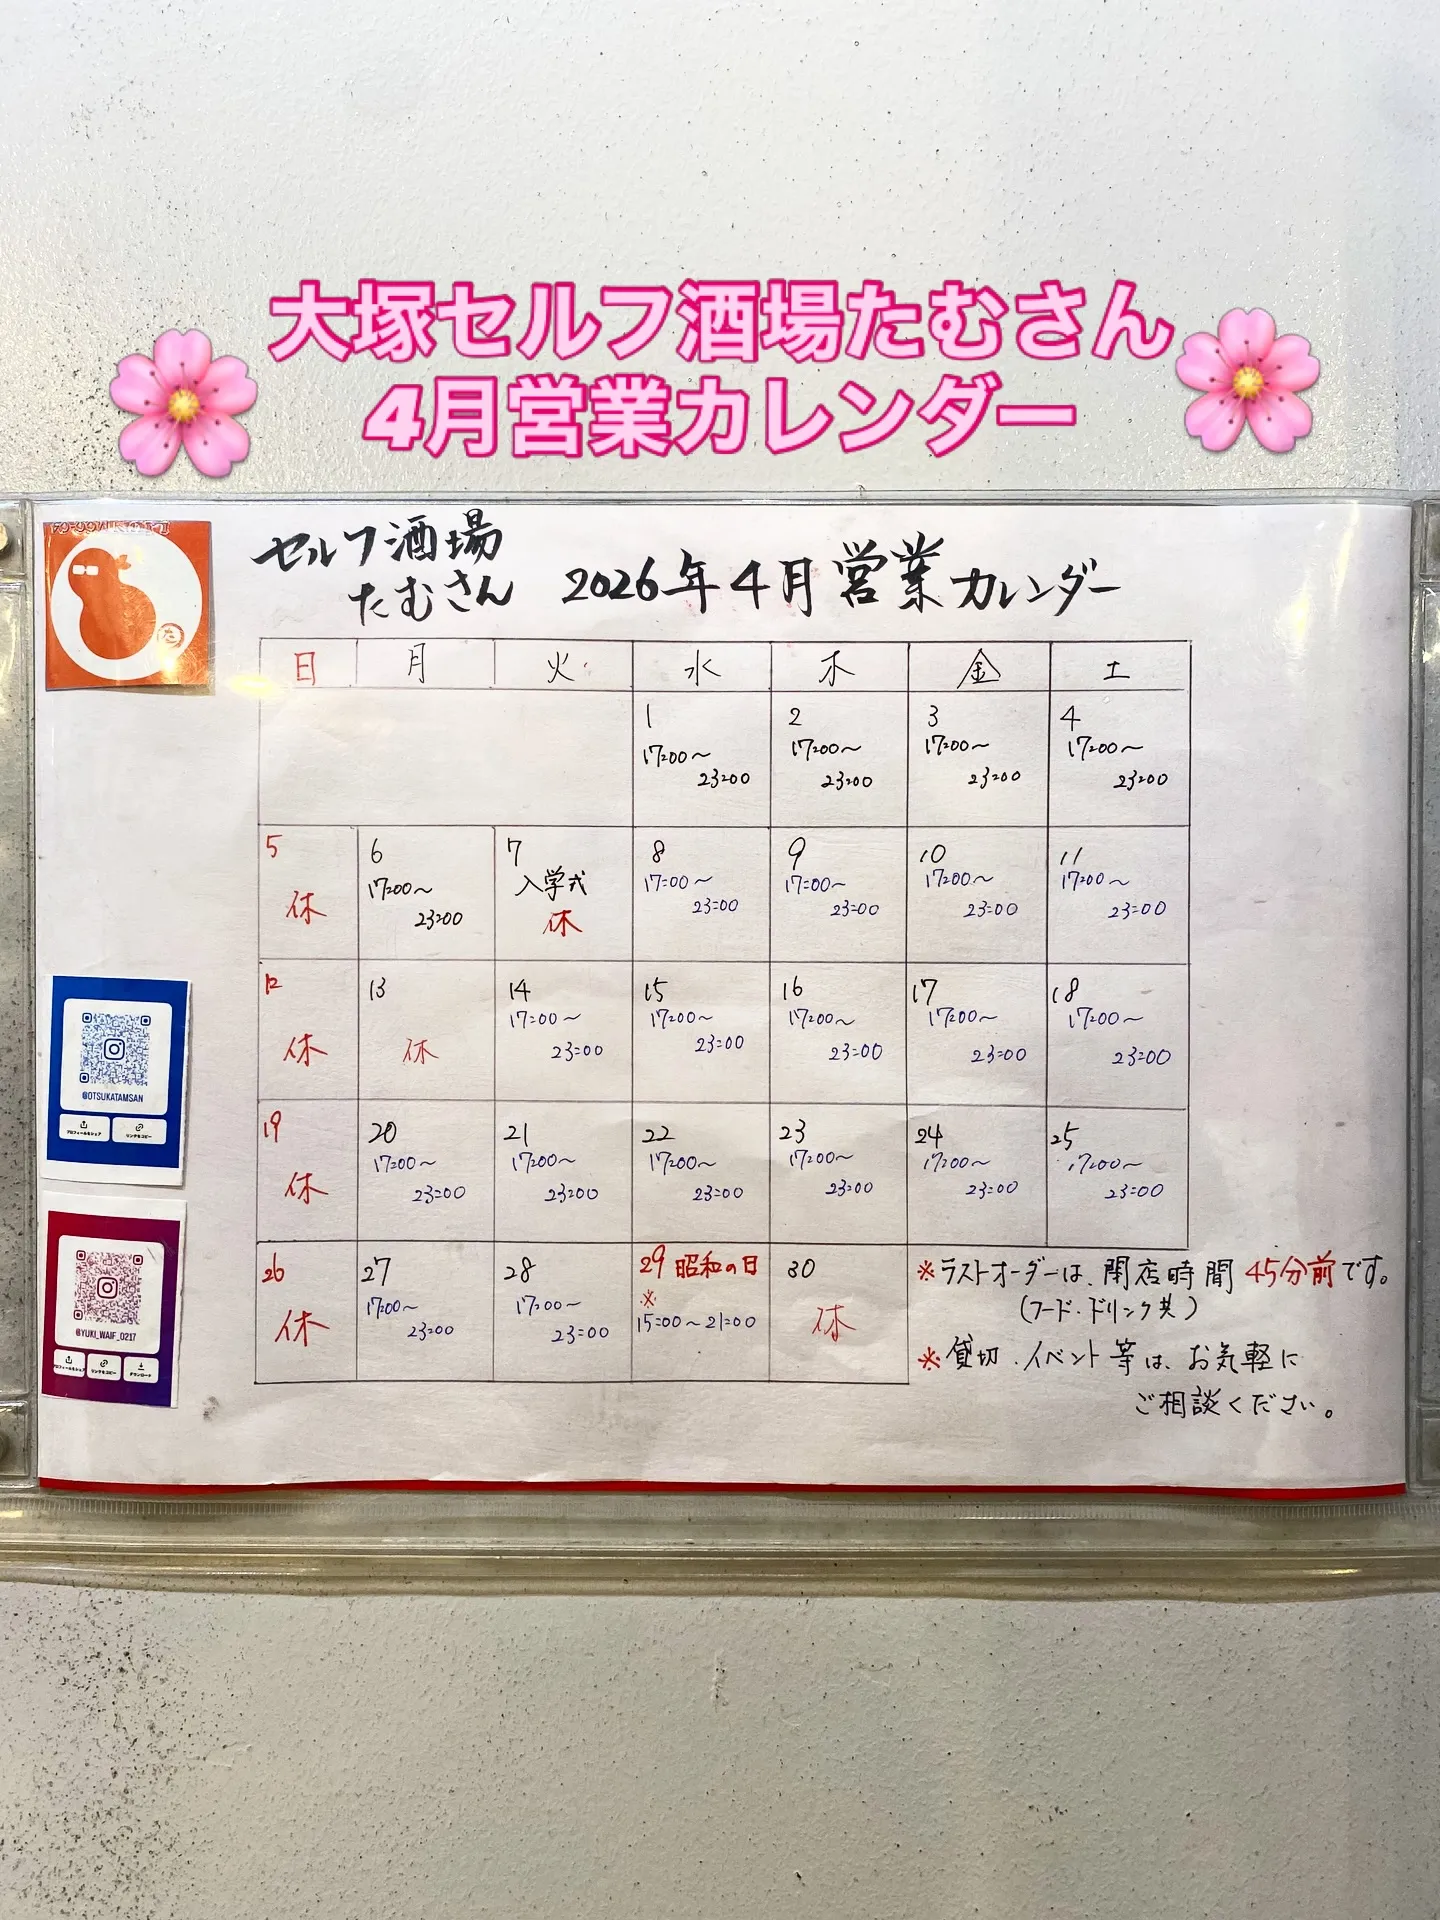 大塚セルフ酒場たむさん
4月営業カレンダー
セルフ酒場
たむさん
2026年4月営業カレンダー
日 月 火 水 木 金 土
1 2 3 4
17:00～ 17:00～ 17:00～ 17:00～
23:00 23:00 23:00 23:00
5 6 7 8 9 10 11
17:00～ 入学式 17:00～ 17:00～ 17:00～ 17:00～
休 23:00 休 23:00 23:00 23:00 23:00
12 13 14 15 16 17 18
17:00～ 17:00～ 17:00～ 17:00～ 17:00～
休 休 23:00 23:00 23:00 23:00 23:00
19 20 21 22 23 24 25
17:00～ 17:00～ 17:00～ 17:00～ 17:00～ 17:00～
休 23:00 23:00 23:00 23:00 23:00 23:00
26 27 28 29 昭和の日 30
17:00～ 17:00～ ※
休 23:00 23:00 15:00～21:00 休
※ラストオーダーは、閉店時間45分前です。
(フード・ドリンク共)
※貸切・イベント等は、お気軽に
ご相談ください。
@OTSUKATAMSAN
プロフィールをシェア リンクをコピー
@YUKI_WAIF_0217
プロフィールをシェア リンクをコピー ダウンロード